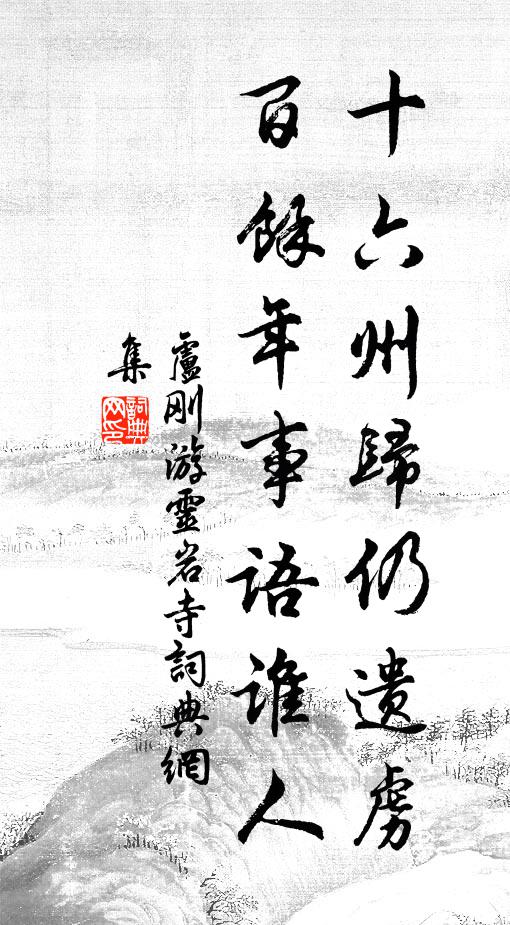 十六州歸仍遺虜
百餘年事語誰人
盧剛游靈岩寺詞典網
集
詞典網印